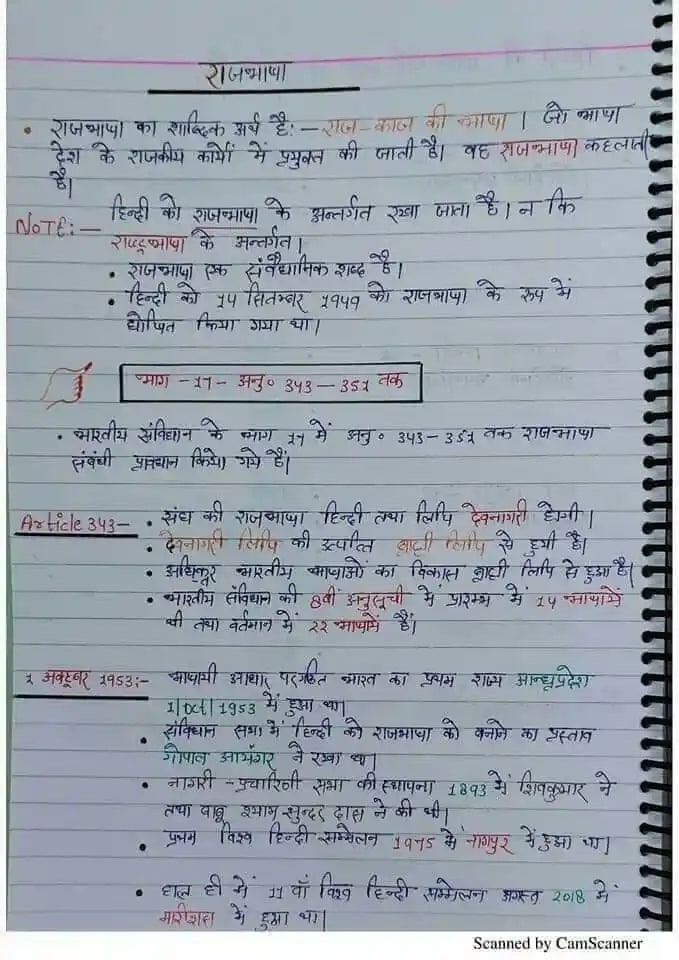 राजभाषा
• राजभाषा का शाब्दिक अर्थ है:- राज-काज की भाषा। जो भाषा
देश के राजकीय कार्यों में प्रयुक्त की जाती है। वह राजभाषा कहलाती
है।
NOTE:- हिन्दी को राजभाषा के अन्तर्गत रखा जाता है। न कि
राष्ट्रभाषा के अन्तर्गत।
• राजभाषा एक संवैधानिक शब्द है।
• हिन्दी को 14 सितम्बर 1949 को राजभाषा के रूप में
घोषित किया गया था।
भाग -17- अनु० 343-351 तक
• भारतीय संविधान के भाग 17 में अनु० 343-351 तक राजभाषा
संबंधी प्रावधान किये गये हैं।
Article 343- • संघ की राजभाषा हिन्दी तथा लिपि देवनागरी होगी।
• देवनागरी लिपि की उत्पत्ति ब्राह्मी लिपि से हुयी है।
• अधिकतर भारतीय भाषाओं का विकास ब्राह्मी लिपि से हुआ है।
• भारतीय संविधान की 8वीं अनुसूची में प्रारम्भ में 14 भाषायें
थी तथा वर्तमान में 22 भाषायें हैं।
1 अक्टूबर 1953:- भाषायी आधार पर गठित भारत का प्रथम राज्य आन्ध्रप्रदेश
1|Oct|1953 में हुआ था।
• संविधान सभा में हिन्दी को राजभाषा को बनाने का प्रस्ताव
गोपाल आयंगर ने रखा था।
• नागरी-प्रचारिनी सभा की स्थापना 1893 में शिवकुमार ने
तथा बाबू श्याम सुन्दर दास ने की थी।
• प्रथम विश्व हिन्दी सम्मेलन 1975 में नागपुर में हुआ था।
• हाल ही में 11 वाँ विश्व हिन्दी सम्मेलन अगस्त 2018 में
मारीशस में हुआ था।
Scanned by CamScanner